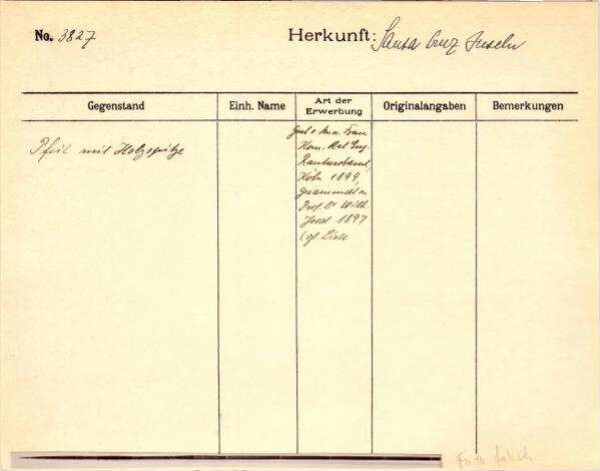 No. 3827 Herkunft: Santa Cruz Inseln
Gegenstand Einh. Name Art der Erwerbung Originalangaben Bemerkungen
Pfeil mit Holzspitze
Frau
Kom. Rat Eug.
Rautenstrauch,
Köln 1899,
gesammelt v.
Prof. Dr Wilh.
Joest 1897
Foto falsch